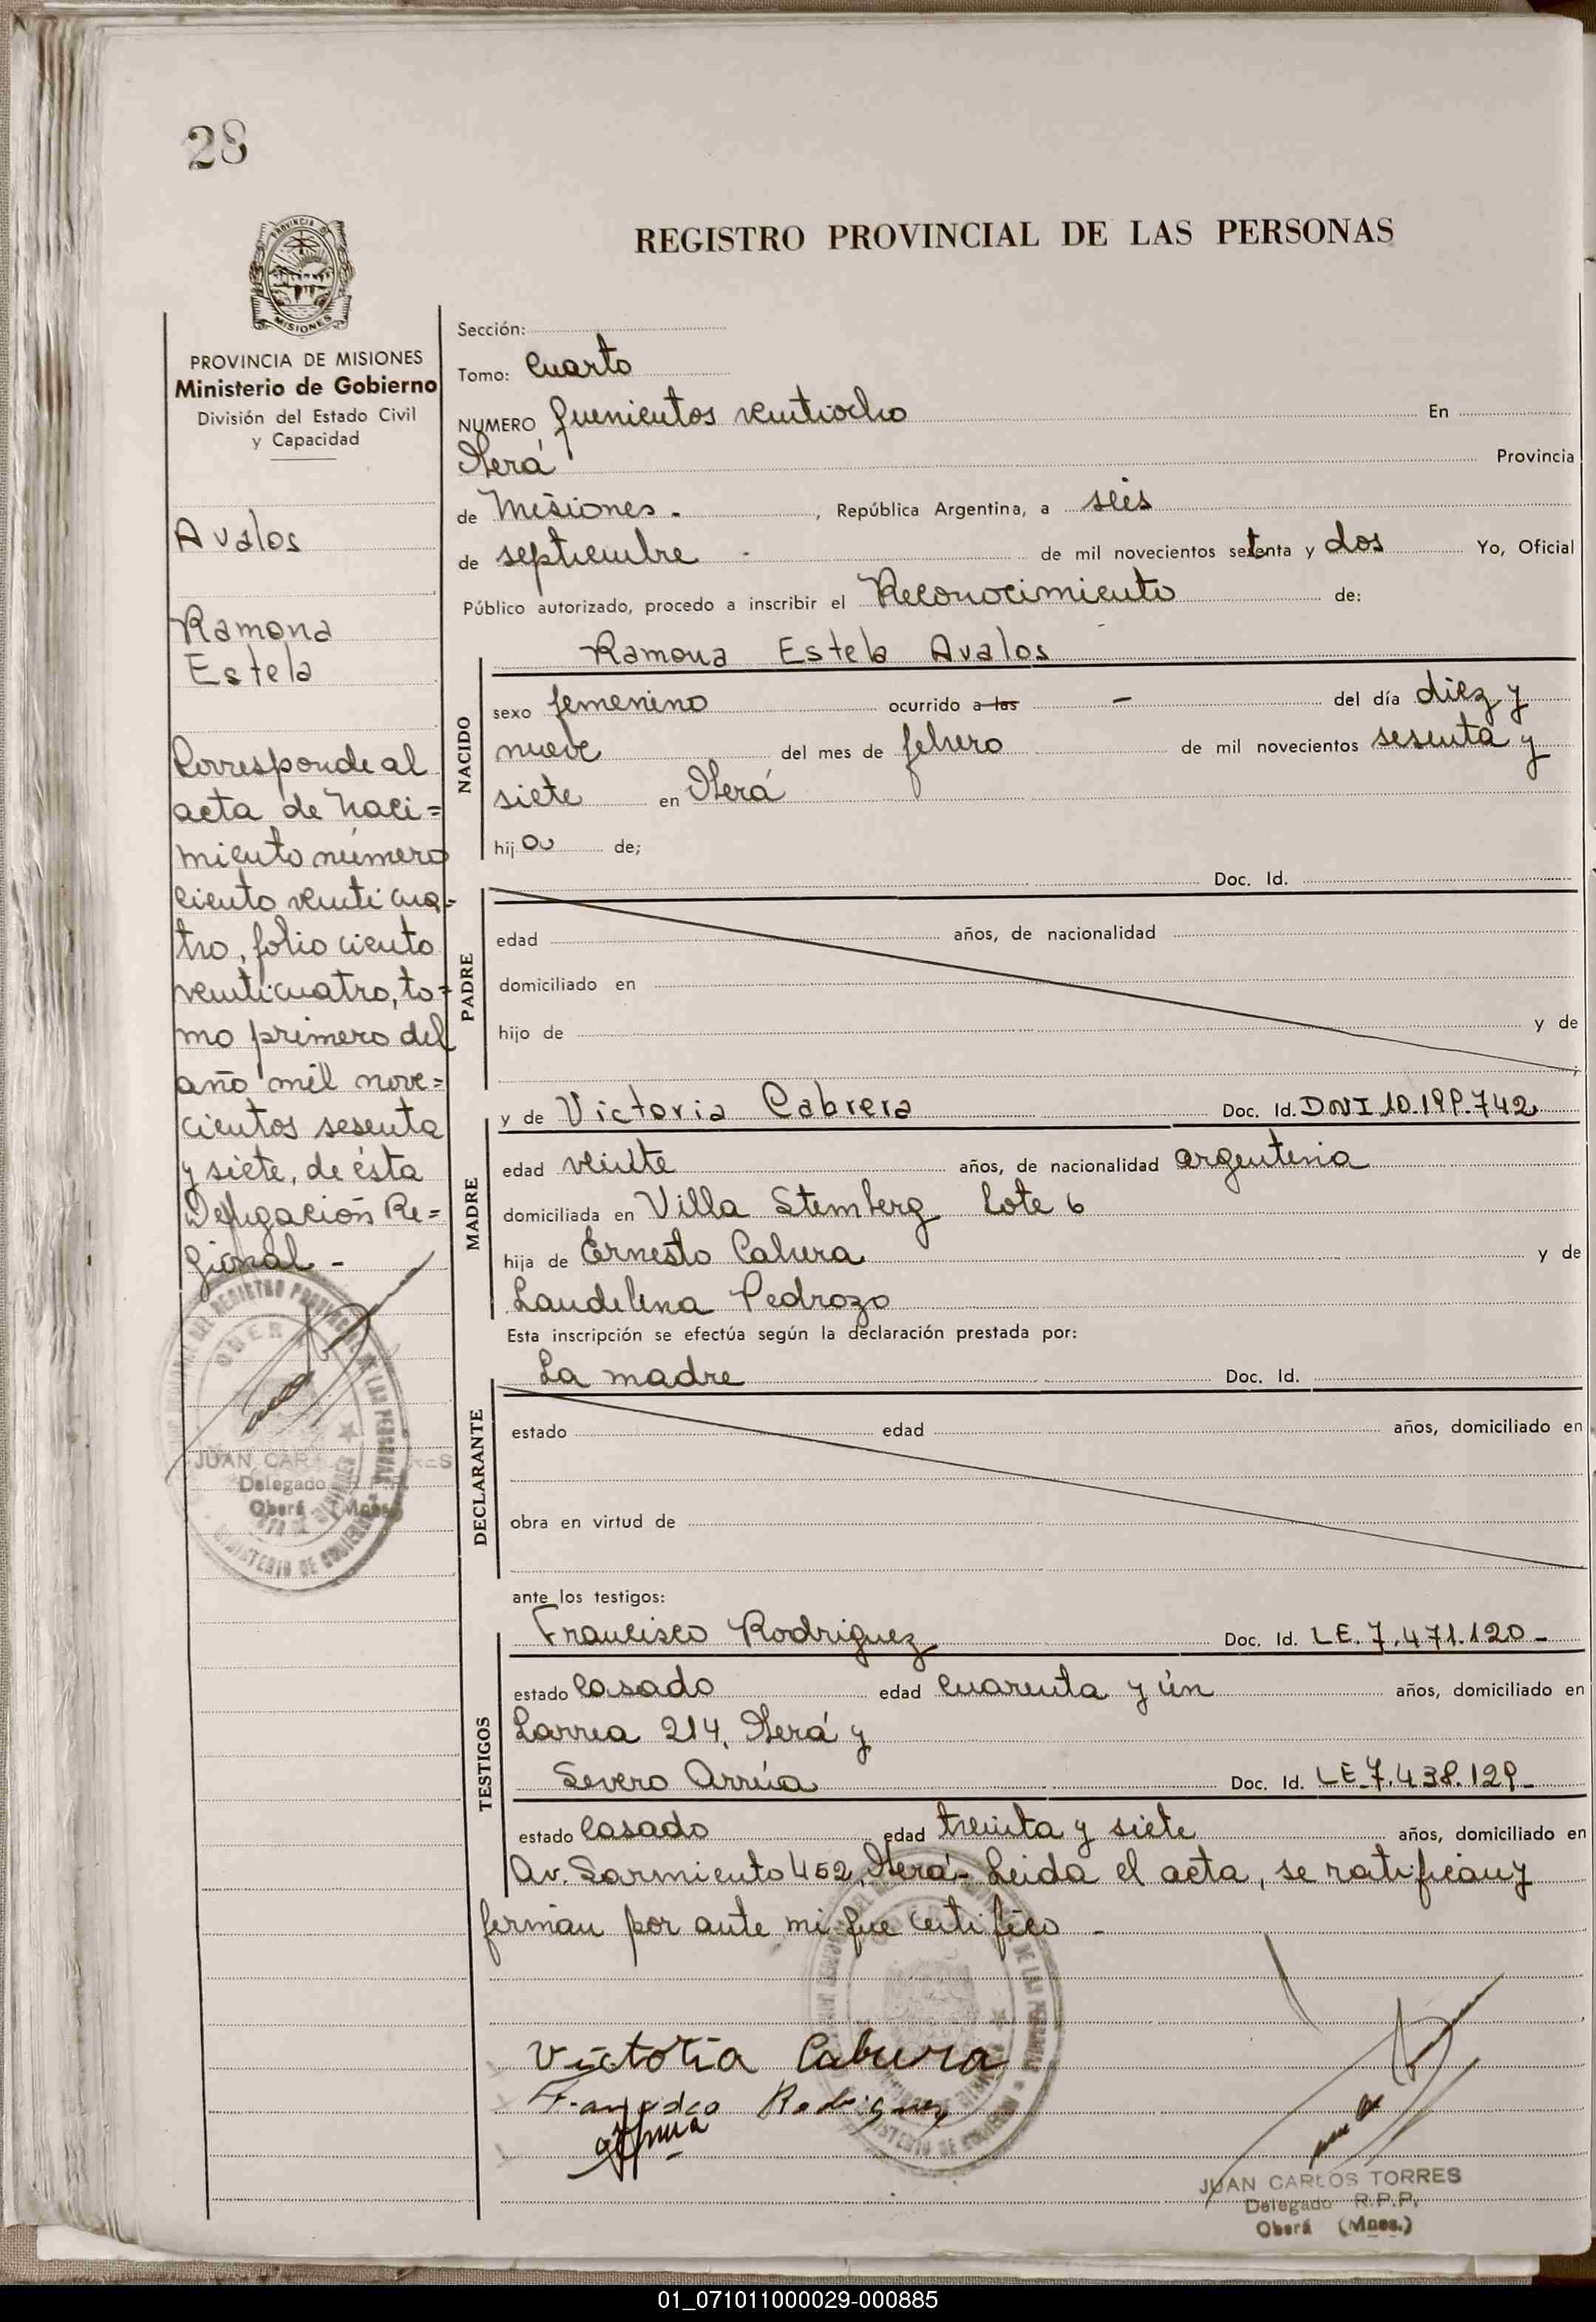 28
PROVINCIA DE
MISIONES
REGISTRO PROVINCIAL DE LAS PERSONAS
PROVINCIA DE MISIONES
Ministerio de Gobierno
División del Estado Civil
y Capacidad
Avalos
Ramona
Estela
Corresponde al
acta de naci=
miento número
ciento venticua-
tro, folio ciento
venticuatro, to=
mo primero del
año mil nove=
cientos sesenta
y siete, de ésta
Delegación Re=
gional -
JUAN CAR RES
Delegado
Oberá (Mnes.)
Sección:
Tomo: Cuarto
NUMERO Quenientos ventiocho En
Oberá Provincia
de Misiones. , República Argentina, a seis
de septiembre - de mil novecientos setenta y dos Yo, Oficial
Público autorizado, procedo a inscribir el Reconocimiento de:
NACIDO
Ramona Estela Avalos
sexo femenino ocurrido a las - del día diez y
nueve del mes de febrero de mil novecientos sesenta y
siete en Oberá
hija de;
PADRE
Doc. Id.
edad años, de nacionalidad
domiciliado en
hijo de y de
MADRE
y de Victoria Cabrera Doc. Id. DNI 10.199.742
edad veinte años, de nacionalidad argentina
domiciliada en Villa Stemberg Lote 6
hija de Ernesto Cabrera y de
Laudelina Pedrozo
Esta inscripción se efectúa según la declaración prestada por:
DECLARANTE
La madre Doc. Id.
estado edad años, domiciliado en
obra en virtud de
ante los testigos:
TESTIGOS
Francisco Rodriguez Doc. Id. LE.7.471.120-
estado Casado edad cuarenta y ún años, domiciliado en
Larrea 214, Oberá y
Severo Arrúa Doc. Id. LE.7.438.129-
estado Casado edad treinta y siete años, domiciliado en
Av. Sarmiento 452, Oberá- Leida el acta, se ratifican y
firman por ante mi que certifico -
Victoria Cabrera
Francisco Rodriguez
JUAN CARLOS TORRES
Delegado R.P.P.
Oberá (Mnes.)
01_071011000029-000885